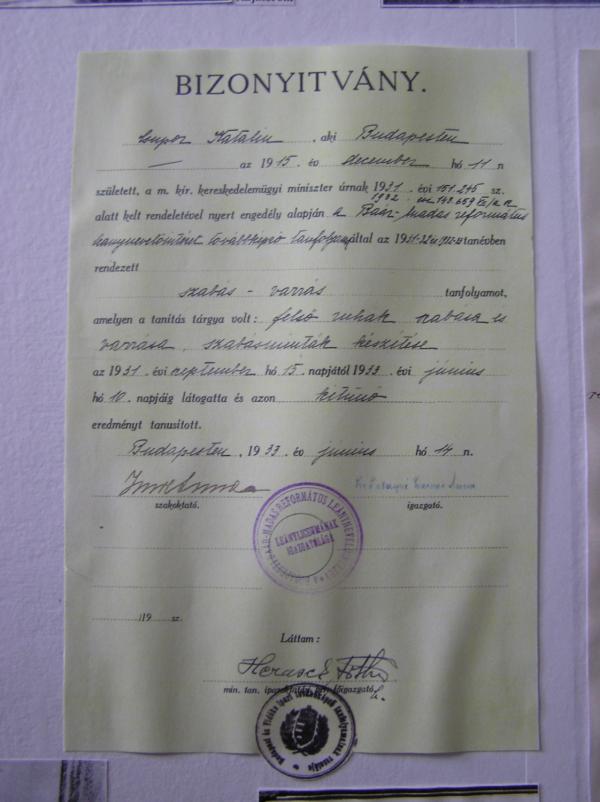 BIZONYITVÁNY.
Katalin, aki Budapesten
az 1915. év december hó 11 n
született, a m. kir. kereskedelemügyi miniszter úrnak 1931. évi 151.245 sz.
1932
alatt kelt rendeletével nyert engedély alapján a Baár-Madas református
továbbképző tanfolyam által az 1931-32 és tanévben
rendezett
szabás - varrás tanfolyamot,
amelyen a tanítás tárgya volt: felső ruhák szabása és
varrása, szabásminták készítése
az 1931. évi szeptember hó 15. napjától 1933. évi június
hó 10. napjáig látogatta és azon kitünő
eredményt tanusított.
Budapesten, 1933. év június hó 14 n.
szakoktató. igazgató.
BAÁR-MADAS REFORMÁTUS LEÁNYNEVELŐ
LEÁNYLICEUMÁNAK
IGAZGATÓSÁGA
19 sz.
Láttam:
min. tan. főigazgató